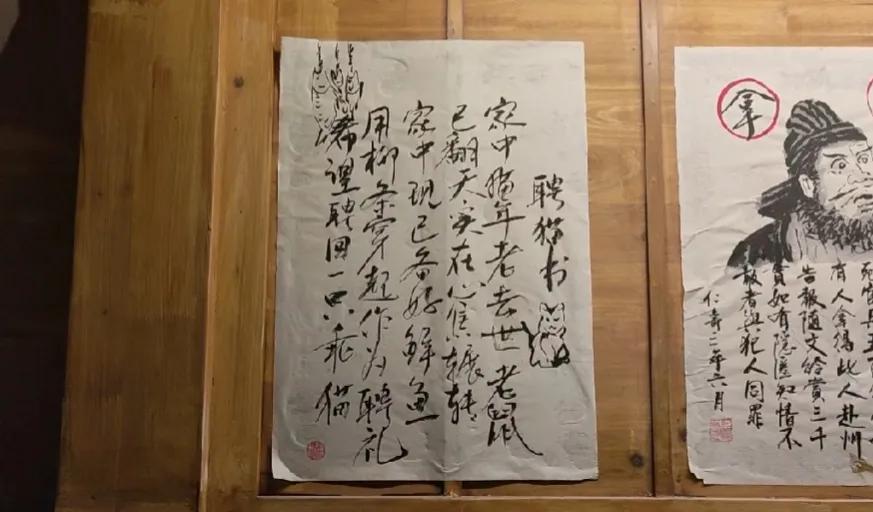 聘猫书
家中猫年老去世老鼠
已翻天实在心焦辗转
家中现已备好鲜鱼
用柳条穿起作为聘礼
希望聘回一只乖猫
拿
有人拿得此人赴州
告报随文给赏三千
贯如有隐匿知情不
报者与犯人同罪
仁寿二年六月